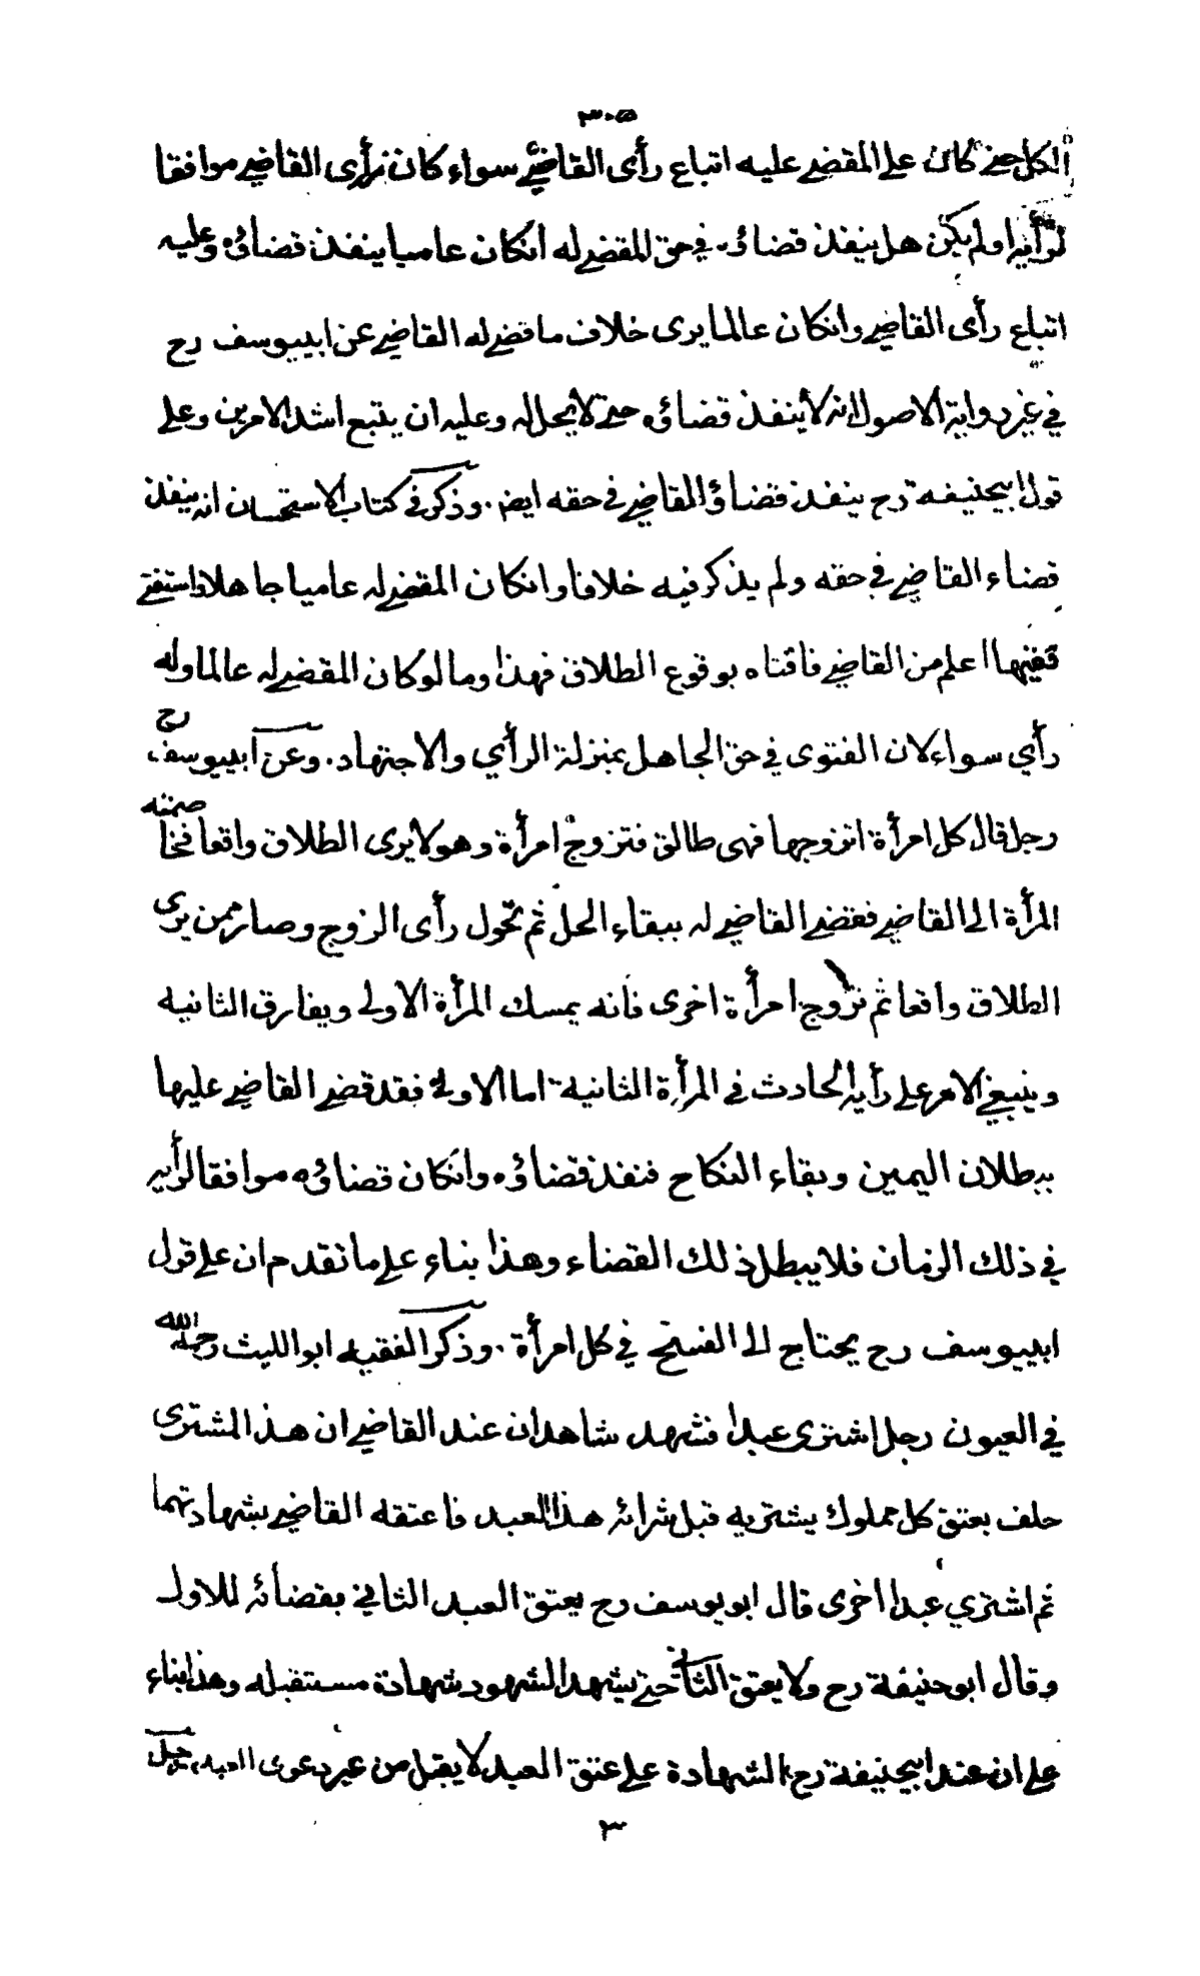 ٣٠٥
الكل حتى كان على المقضي عليه اتباع رأى القاضي سواء كان رأى القاضي موافقا
لرأيه او لم يكن هل ينفذ قضاؤه في حق المقضي له انكان عاميا ينفذ قضاؤه وعليه
اتباع رأى القاضي وانكان عالما يرى خلاف ما قضي له القاضي عن ابييوسف رح
في غير رواية الاصول انه لا ينفذ قضاؤه حتى لا يحل له وعليه ان يتبع اشد الامرين وعلى
قول ابيحنيفة رح ينفذ قضاؤ القاضي في حقه ايض . وذكر في كتاب الاستحسان انه ينفذ
قضاء القاضي في حقه ولم يذكر فيه خلافا وانكان المقضي له عاميا جاهلا استفتى
فقيها اعلم من القاضي فافتاه بوقوع الطلاق فهذا وما لو كان المقضي له عالما وله
رأي سواء لان الفتوى في حق الجاهل بمنزلة الرأي والاجتهاد . وعن ابييوسف رح
رجل قال كل امرأة اتزوجها فهى طالق فتزوج امرأة وهو لا يرى الطلاق واقعا فخاصمته
المرأة الى القاضي فقضى القاضي له ببقاء الحل ثم تحول رأى الزوج وصار ممن يرى
الطلاق واقعا ثم تزوج امرأة اخرى فانه يمسك المرأة الاولى ويفارق الثانية
وينبغي الامر على رأيه الحادث في المرأة الثانية اما الاولى فقد قضى القاضي عليها
ببطلان اليمين وبقاء النكاح فنفذ قضاؤه وانكان قضاؤه موافقا لرأيه
في ذلك الزمان فلا يبطل ذلك القضاء وهذا بناء على ما تقدم ان على قول
ابييوسف رح يحتاج الى الفسخ في كل امرأة . وذكر الفقيه ابو الليث رحمه الله
في العيون رجل اشترى عبدا فشهد شاهدان عند القاضي ان هذا المشترى
حلف بعتق كل مملوك يشتريه قبل شرائه هذا العبد فاعتقه القاضي بشهادتهما
ثم اشتري عبدا اخرى قال ابو يوسف رح يعتق العبد الثاني بقضائه للاول
وقال ابو حنيفة رح ولا يعتق الثاني حتى يشهد الشهود شهادة مستقبله وهذا بناء
على ان عند ابيحنيفة رح الشهادة على عتق العبد لا يقبل من غير دعوى العبد . رجل
٣